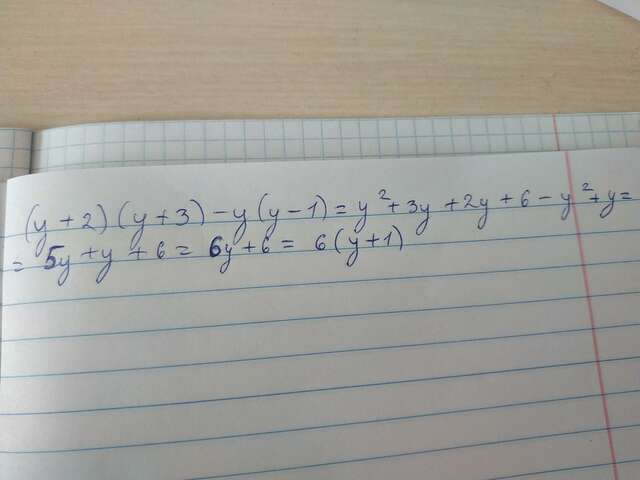 (y + 2) (y + 3) - y (y - 1) = y² + 3y + 2y + 6 - y² + y =
= 5y + y + 6 = 6y + 6 = 6 (y + 1)